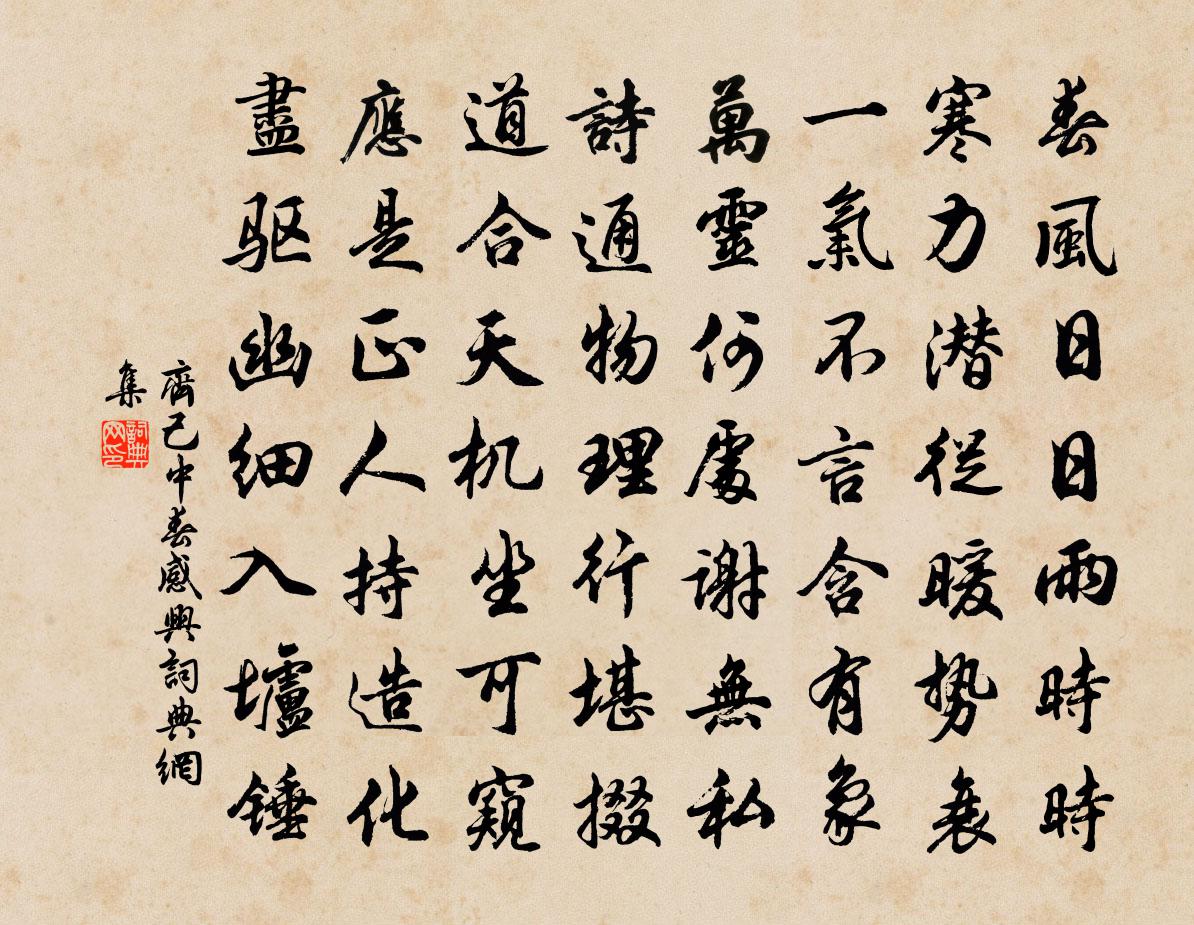 春風日日雨時時
寒力潜從暖势衰
一氣不言含有象
萬靈何處謝無私
詩通物理行堪掇
道合天机坐可窺
應是正人持造化
盡驱幽细入壚錘
齊己中春感興詞典網
集
詞典
网印